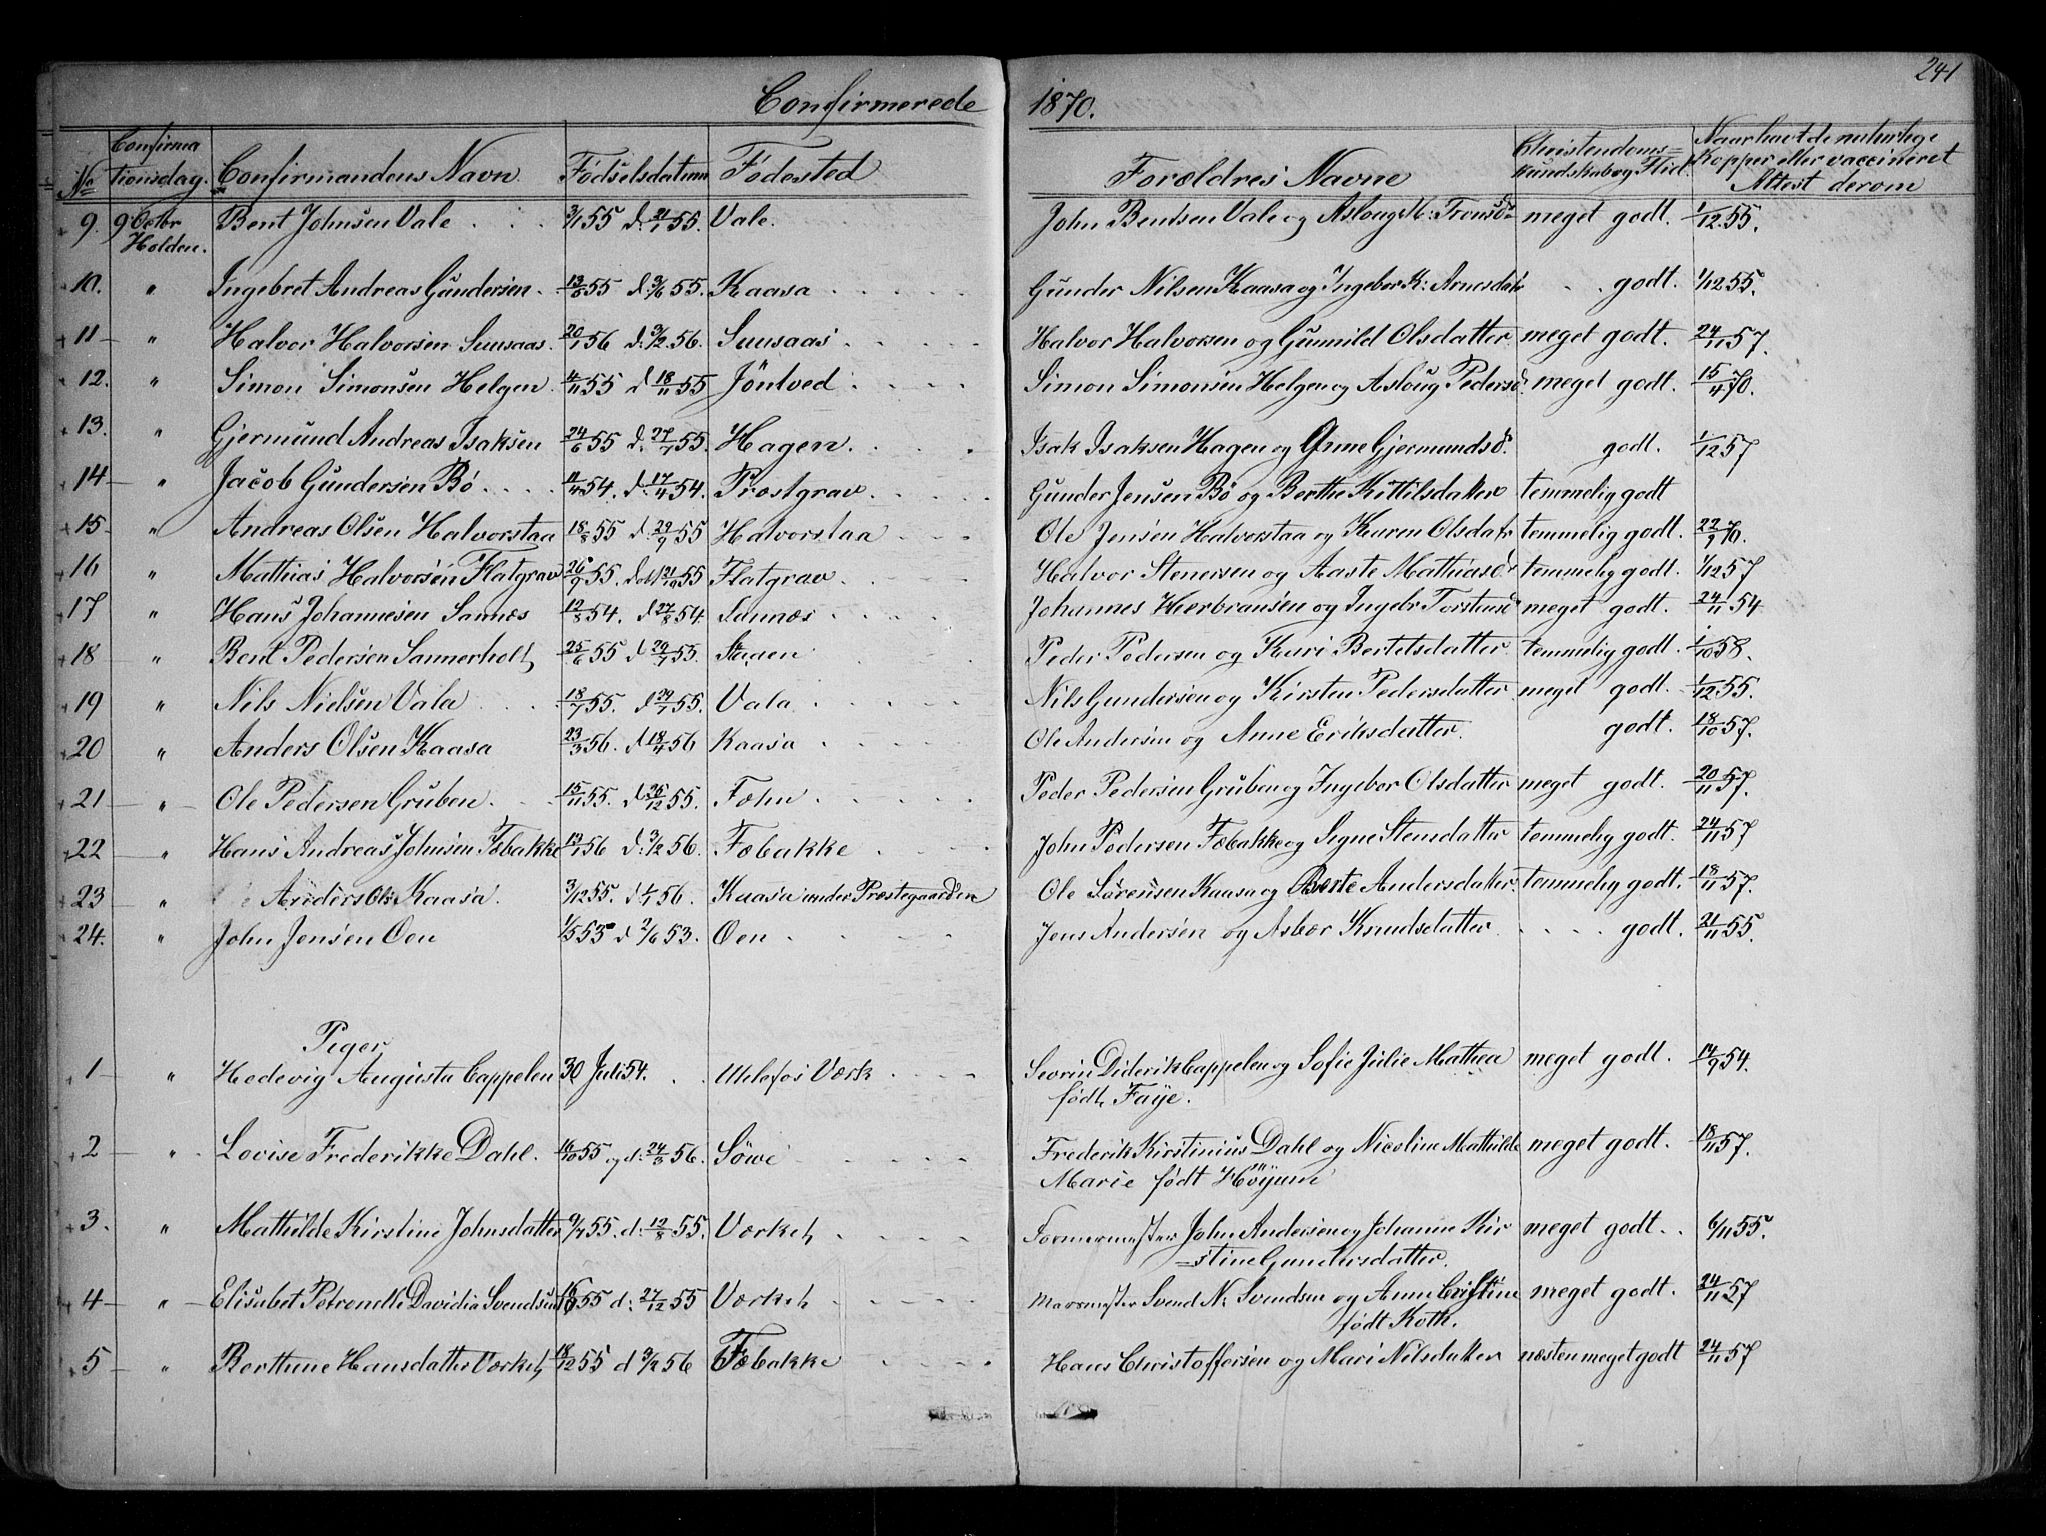 241
Confirmerede 1870.
No Confirmationsdag. Confirmandens Navn Fødselsdatum Fødested Forældres Navne Christendoms= kundskab og Flid. Naar havt de naturlige Kopper eller vaccineret Attest derom
9. 9 Octbr Holden. Bent Johnsen Vale 3/1 55 d: 21/1 55. Vale. John Bentsen Vale og Aslaug M: Tronsd: meget godt. 1/12 55.
10. " Ingebret Andreas Gundersen 55 d: 3/6 55. Kaasa Gunder Nilsen Kaasa og Ingebor K: Arnesdatr godt. 1/12 55.
11 " Halvor Halvorsen Suusaas. 20/1 56 d: 3/2 56. Suusaas Halvor Halvorsen og Gunnild Olsdatter meget godt. 24/11 57.
12. " Simon Simonsen Helgen 4/11 55 d 18/11 55 Jöntved Simon Simonsen Helgen og Asloug Pedersd. meget godt. 15/4 70.
13. " Gjermund Andreas Isaksen 24/6 55 d. 27/7 55. Hagen Isak Isaksen Hagen og Anne Gjermundsd. godt. 1/12 57
14 " Jacob Gundersen Bø 11/4 54. d: 17/4 54. Præstgrav Gunder Jensen Bø og Berthe Kittilsdatter temmelig godt
15 " Andreas Olsen Halvorstaa 18/8 55 d. 29/9 55 Halvorstaa Ole Jensen Halvorstaa og Karen Olsdatr temmelig godt. 22/9 70.
16 " Mathias Halvorsen Flatgrav 26/9 55. d. 21/10 55 Flatgrav Halvor Stenersen og Aaste Mathiasd. temmelig godt. 1/12 57
17 " Hans Johannesen Sannes 12/8 54. d 27/8 54. Sannæs Johannes Herbransen og Ingebr Torstensd. meget godt. 24/11 54
18 " Bent Pedersen Sannerholt 25/6 55 d 29/7 55. Peder Pedersen og Kari Bertelsdatter temmelig godt. 1/10 58.
19 " Nils Nielsen Vala 18/7 55. d 29/7 55. Vala Nils Gundersen og Kirsten Pedersdatter meget godt. 1/12 55.
20 " Anders Olsen Kaasa 23/3 56. d 18/4 56 Kaasa Ole Andersen og Anne Eriksdatter. godt. 18/10 57.
21 " Ole Pedersen Gruben 15/11 55. d 26/12 55. Fæhn Peder Pedersen Gruben og Ingebor Olsdatter meget godt. 20/11 57.
22 " Hans Andreas Johnsen Fæbakke 13/1 56 d: 3/2 56. Fæbakke John Pedersen Fæbakke og Signe Stensdatter temmelig godt. 24/11 57
23 " Anders Ols Kaasa. 3/12 55. d 1/1 56. Kaasa under Præstegaarden Ole Sørensen Kaasa og Berte Andersdatter. temmelig godt. 18/11 57.
24. " John Jensen Oen 1/5 53 d 2/6 53. Oen Jens Andersen og Asbær Knudsdatter godt. 21/11 55.
Piger
1 " Hedevig Augusta Cappelen 30 Juli 54. Ulefos Værk Severin Diderik Cappelen og Sofie Julie Mathea meget godt. 14/9 54.
født Faye.
2 " Lovise Frederikke Dahl. 16/10 55 og d: 24/3 56. Söwe Frederik Kirstinius Dahl og Nicoline Mathilde meget godt. 18/11 57.
Marie født Höyum
3. " Mathilde Kirstine Johnsdatter 9/7 55. d: 12/8 55. Værket Formermester John Andersen og Johanne Kir meget godt. 6/11 55.
=stine Gundersdatter.
4 " Elisabet Petronelle Davidia Svendsen 55 d: 27/12 55 Værket Svend N: Svendsen og Anne Cristine meget godt. 24/11 57
født Koth.
5 " Berthine Hansdatter Værket 18/12 55 d 3/2 56 Fæbakke Hans Christoffersen og Mari Nilsdatter næsten meget godt 24/11 57